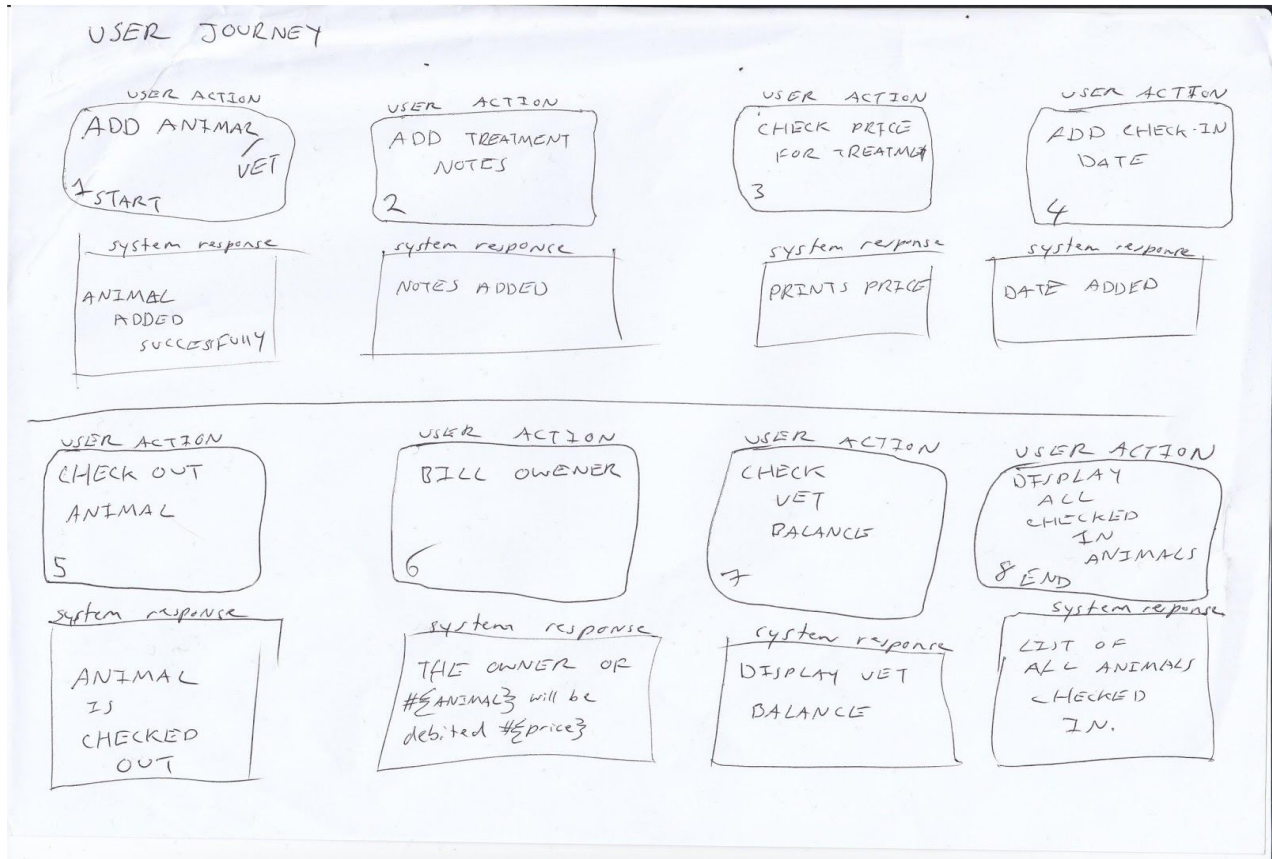 USER JOURNEY
USER ACTION
ADD ANIMAL
/
VET
1 START
system response
ANIMAL
ADDED
SUCCESSFULLY
USER ACTION
ADD TREATMENT
NOTES
2
system response
NOTES ADDED
USER ACTION
CHECK PRICE
FOR TREATMET
3
system response
PRINTS PRICE
USER ACTION
ADD CHECK-IN
DATE
4
system response
DATE ADDED
USER ACTION
CHECK OUT
ANIMAL
5
system response
ANIMAL
IS
CHECKED
OUT
USER ACTION
BILL OWENER
6
system response
THE OWNER OF
#{ANIMAL} will be
debited #{price}
USER ACTION
CHECK
VET
BALANCE
7
system response
DISPLAY VET
BALANCE
USER ACTION
DISPLAY
ALL
CHECKED
IN
ANIMALS
8 END
system response
LIST OF
ALL ANIMALS
CHECKED
IN.